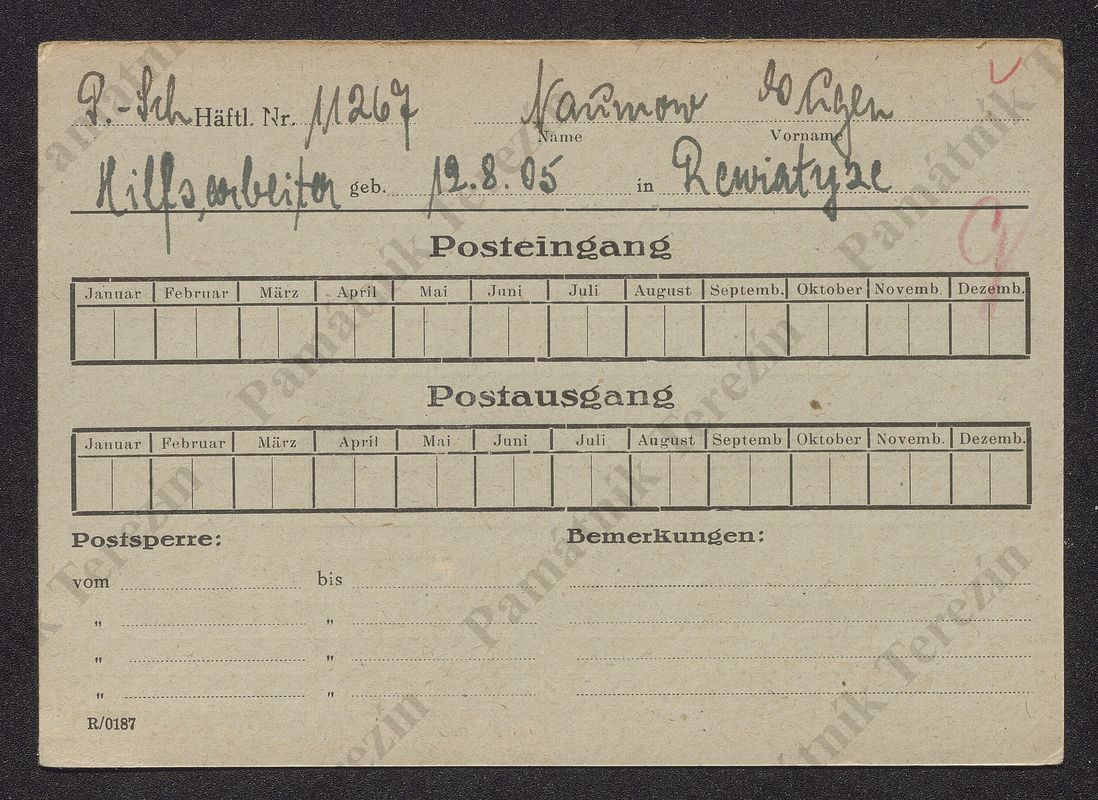 P.-Sch Häftl. Nr. 11267 Naumow Eugen
Name Vorname
Hilfsarbeiter geb. 12.8.05 in Rewiatyze
Posteingang
Januar Februar März April Mai Juni Juli August Septemb. Oktober Novemb. Dezemb.
Postausgang
Januar Februar März April Mai Juni Juli August Septemb Oktober Novemb. Dezemb.
Postsperre: Bemerkungen:
vom bis
" "
" "
" "
R/0187
Památník Terezín